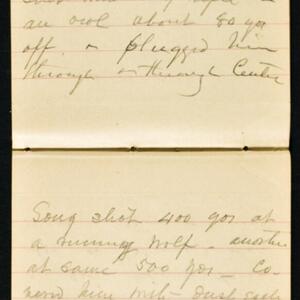 an owl about 80 yds
off. & plugged him
through & through Center
Song shot 400 yds at
a running wolf. another
at same 500 yds — Co-
verd him with dust each